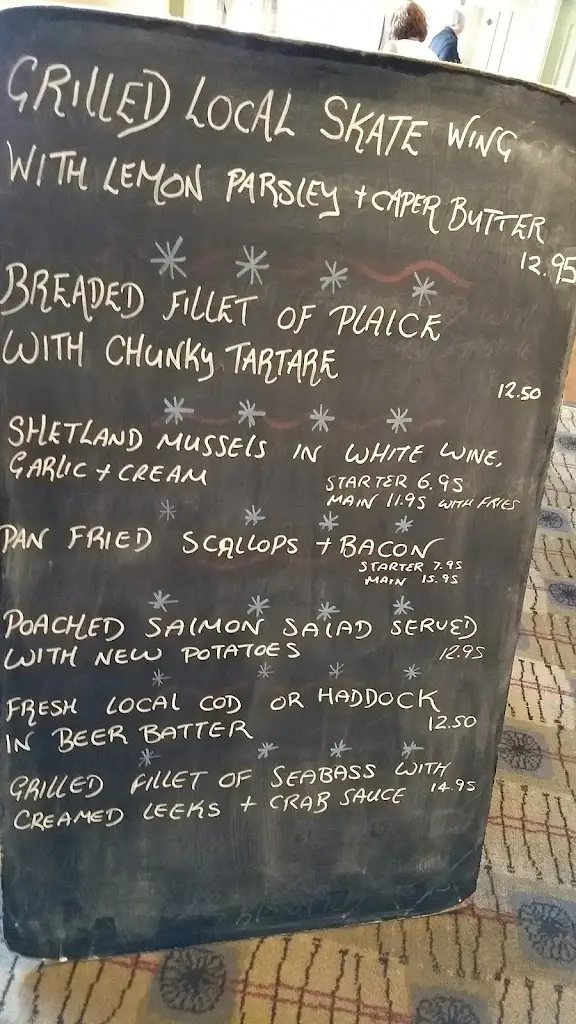 GRILLED LOCAL SKATE WING
WITH LEMON PARSLEY + CAPER BUTTER
12.95
BREADED FILLET OF PLAICE
WITH CHUNKY TARTARE
12.50
SHETLAND MUSSELS IN WHITE WINE,
GARLIC + CREAM
STARTER 6.95
MAIN 11.95 WITH FRIES
PAN FRIED SCALLOPS + BACON
STARTER 7.95
MAIN 15.95
POACHED SALMON SALAD SERVED
WITH NEW POTATOES 12.95
FRESH LOCAL COD OR HADDOCK
IN BEER BATTER 12.50
GRILLED FILLET OF SEABASS WITH
CREAMED LEEKS + CRAB SAUCE 14.95